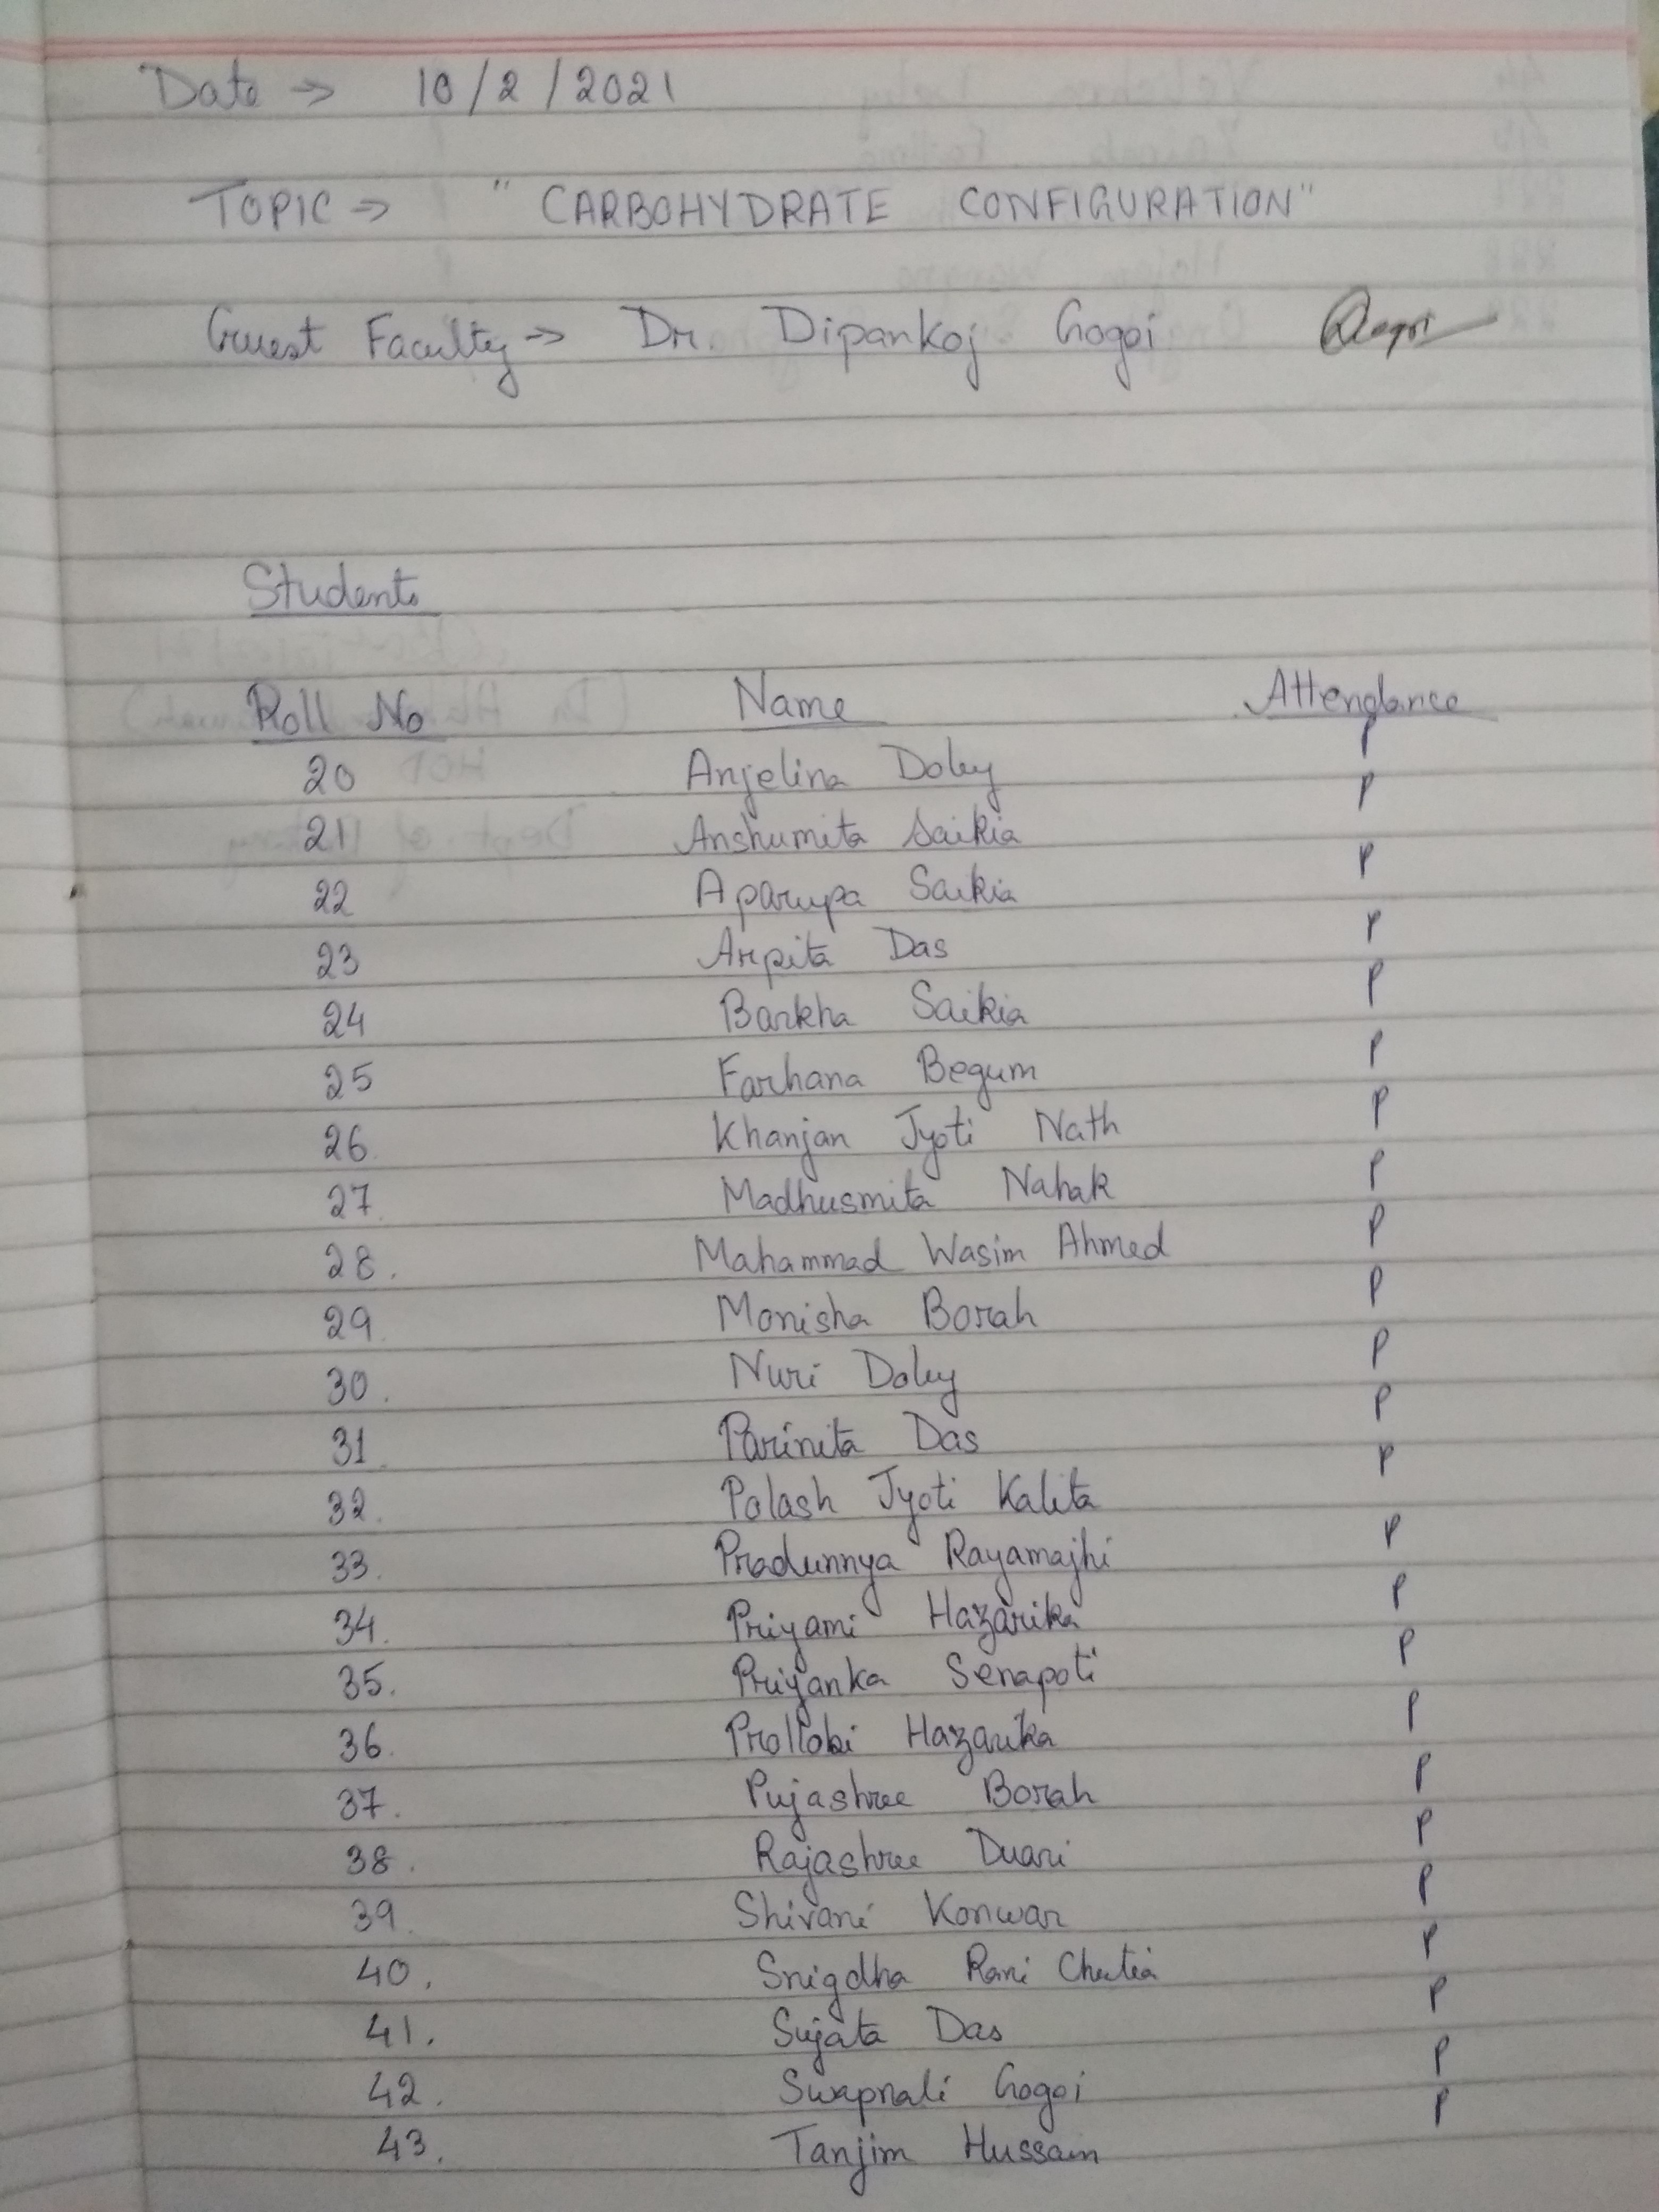 Date → 10/2/2021
TOPIC → "CARBOHYDRATE CONFIGURATION"
Guest Faculty → Dr. Dipankoj Gogoi
Students
Roll No Name Attendance
20 Anjelina Doley P
21 Anshumita Saikia P
22 Aparupa Saikia P
23 Arpita Das P
24 Barkha Saikia P
25 Farhana Begum P
26. Khanjan Jyoti Nath P
27. Madhusmita Nahak P
28. Mahammad Wasim Ahmed P
29. Monisha Borah P
30. Nuri Doley P
31. Parinita Das P
32. Polash Jyoti Kalita P
33. Pradunnya Rayamajhi P
34. Priyami Hazarika P
35. Priyanka Senapoti P
36. Prollobi Hazarika P
37. Pujashree Borah P
38. Rajashree Duari P
39. Shivani Konwar P
40. Snigdha Rani Chutia P
41. Sujata Das P
42. Swapnali Gogoi P
43. Tanjim Hussain P